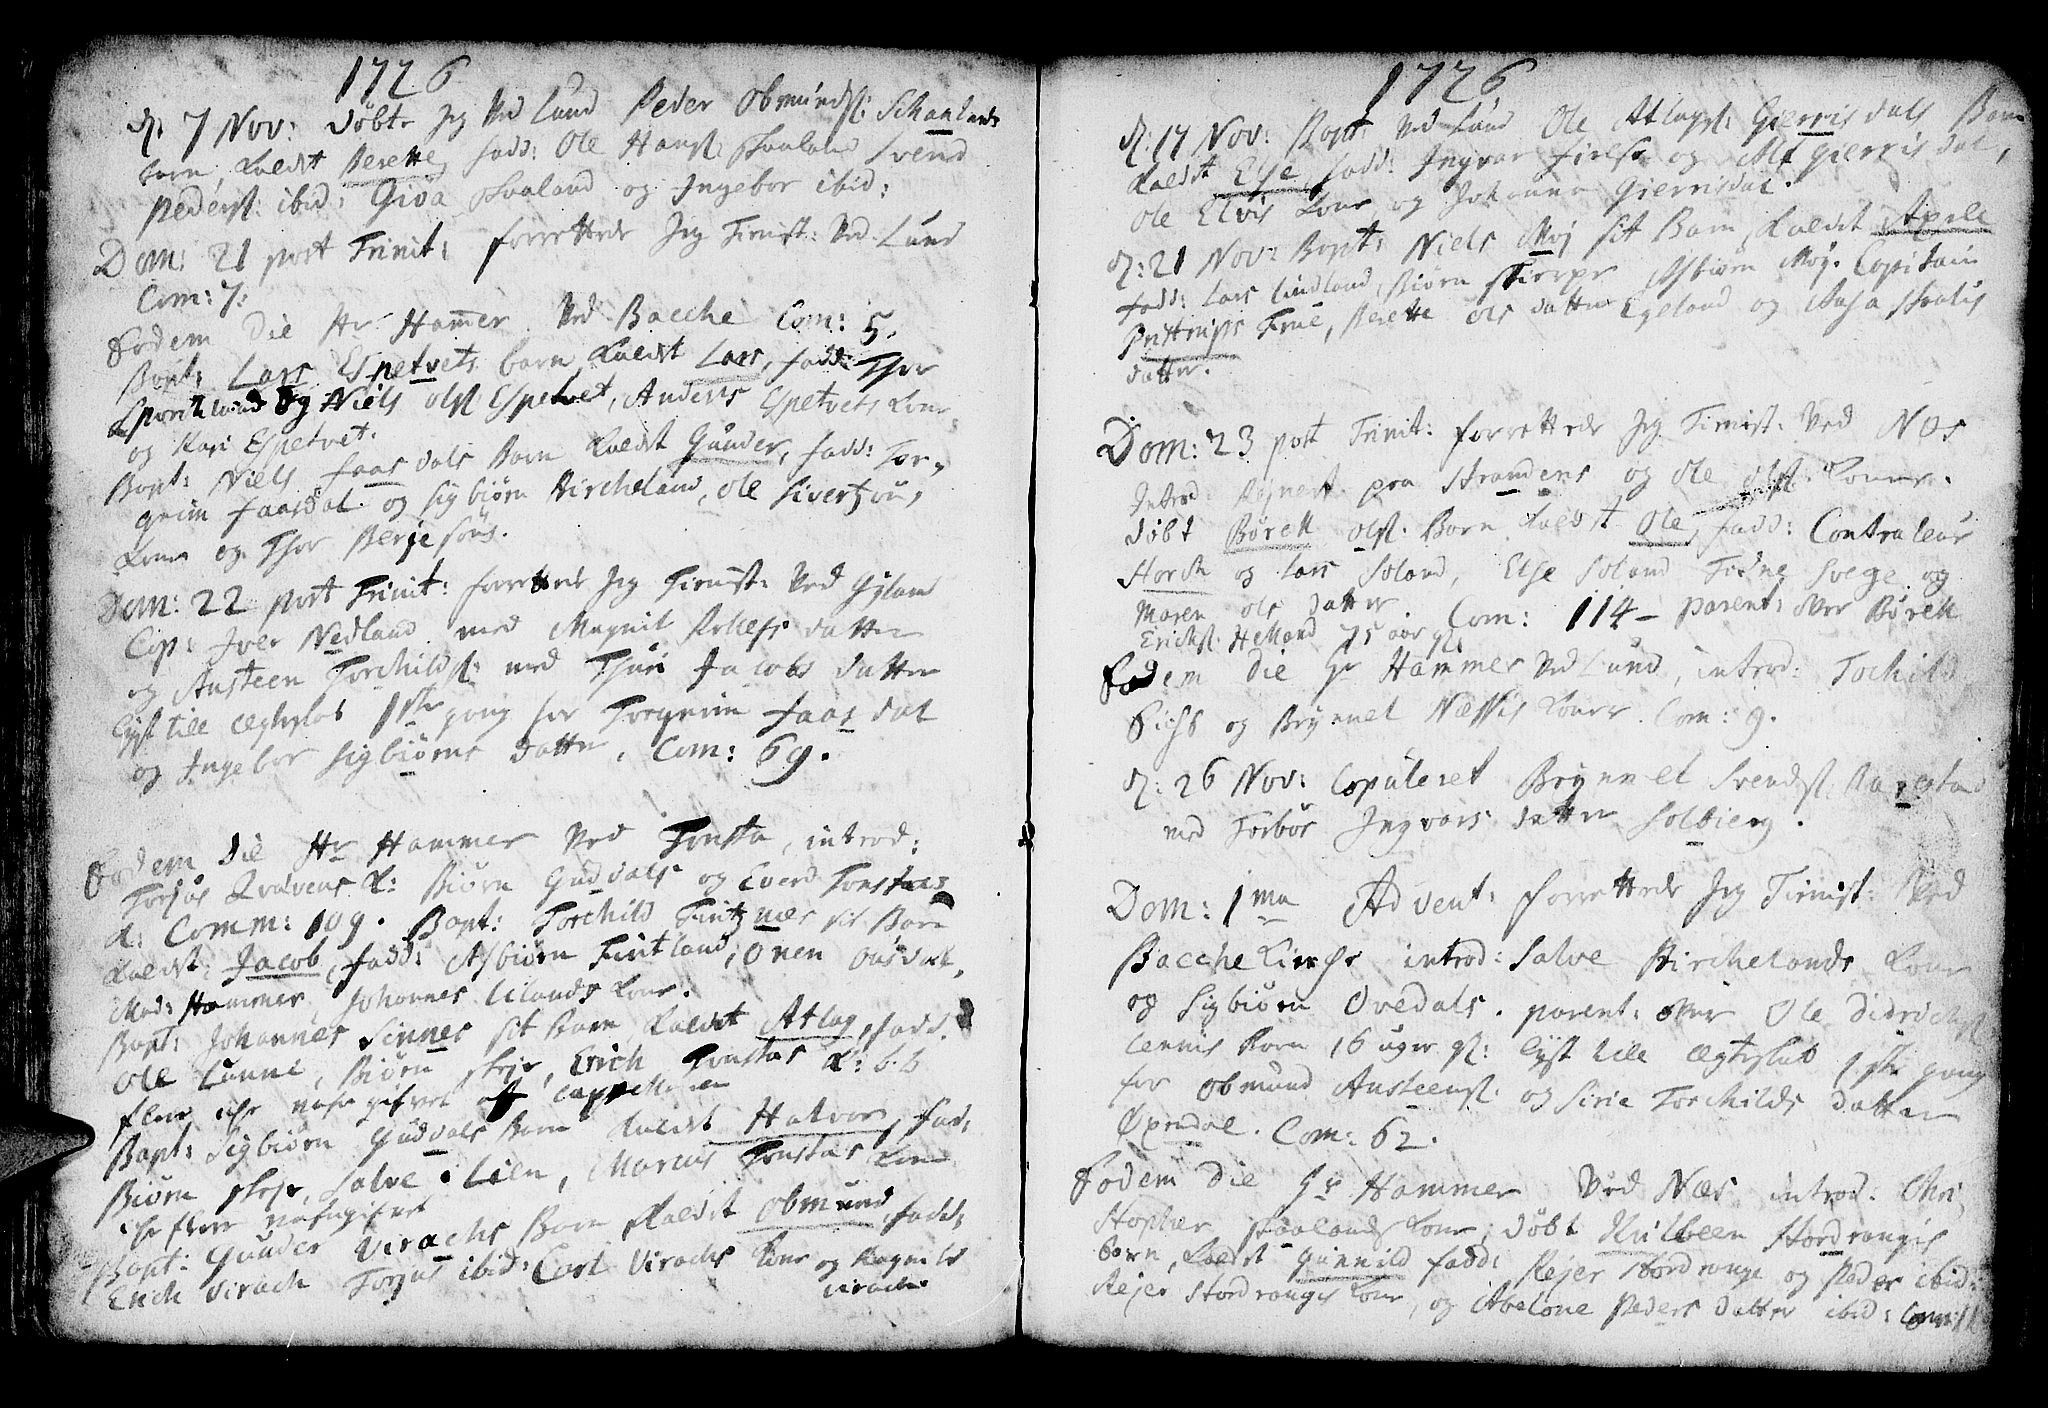 1726
d: 7 Nov: døbte Jeg Ved Lund Peder Obmundsl: Schaalands
barn, kaldet Berette, fadd: Ole Hansl: Skaaland Svend
Pedersl: ibid: Giva Skaaland og Ingebor ibid:
Dom: 21 post Trinit: forrettede Jeg Tienist: Ved Lund
Com: 7:
Eodem Die Hr Hamer Ved Bacche Com: 5.
Bapt: Lars Espetvets barn kaldet Lars, fadd: Thor
og Niels olsl: Espetvet, Anders Espetvets kone
og Kari Espetvet.
Bapt: Niels Faasdals Barn kaldet Gunder, fadd: Tor-
grim Faasdal og Sigbiørn Bircheland, Ole Sivertsøns
kone og Thor Berjesøns.
Dom: 22 post Trinit: forrettede Jeg Tienist: Ved Gyland
Cop: Iver Nedland med Magnil datter
og Austeen Torchildsl: med Thuri Jacobs datter
Lyst till ægteskab 1ste gang for Torgrim Faasdal
og Ingebor Sigbiørns datter. Com: 69.
Eodem Die Hr Hammer Ved Tonsta, introd:
Torjus Qvævens k: Biørn Gudvals og Everd Tonstaes
k: Comm: 109. Bapt: Torchild Fintznes sit Barn
kaldet Jacob, fadd: Asbiørn Fintland, Onen Ousdal,
Mad: Hammer, Johannes Lilands kone.
Bapt: Johannes Sinnes sit Barn kaldet Atlag, fadd:
Ole Lunni, Biørn Skeje, Erich Tonstas k: b:b
flere iche nafngifvet af Cappellanen
Bapt: Sigbiørn Gudvals Barn kaldet Halvor, fad:
Biørn Skeje, Salve i Lien, Marcus Tonstas kone
iche flere nafngifvet
Bapt: Gunder Virachs Barn kaldet Obmund, fadd:
Erich Virach Torjus ibid: Carl Virachs kone og Ragnild
Virach
1726
d: 17 Nov: Bapt: Ved Lund Ole Atlagsl: Gierrisdals Barn
kaldet Else, fadd: Ingvar og Alf Gierrisdal,
Ole Elvis kone og Johanna Gierrisdal.
d: 21 Nov: Bapt: Niels Moj sit Barn kaldet Apele
fadd: Lars Lindland, Biørn Skierpe Asbiørn Moj. Capitain
Frue, Berette Ols datter Egeland og Aasa
datter.
Dom: 23 post Trinit: forrettede Jeg Tienist: Ved Næs
Introd: paa Strandens og Ole olsl: koner.
døbt Børell olsl: Barn kaldet Ole, fadd: Contraleur
Storch og Lars Soland, Else Soland Tedne Svege og
Maren ols datter. Com: 114 – parent: over Børell
Erichsl: Helland 75 aar gl:
Eodem Die Hr Hammer Ved Lund, introd: Tochild
og Brynnel Næssis koner. Com: 9.
d: 26 Nov: Copuleret Brynnel Svendsl:
med Torbor Ingvars datter Solbierg.
Dom: 1ma Advent: forrettede Jeg Tienist: Ved
Bacche Kirche introd: Salve Birchelands kone
og Sigbiørn Ovedals. parent: over Ole Didrichsl:
Lennis Barn 16 uger gl: Lyst till ægteskab 1ste gang
for Obmund Austeensl: og Sirie Torchilds datter
Øxendal. Com: 62.
Eodem Die Hr Hammer Ved Næs introd: Chri
stopher Skaalands kone; døbt Stordrangis
barn, kaldet Gunnild fadd: Rejer Stordrange og Peder ibid:
Rejer Stordrangis kone, og Abelone Peders datter ibid: Com: 11